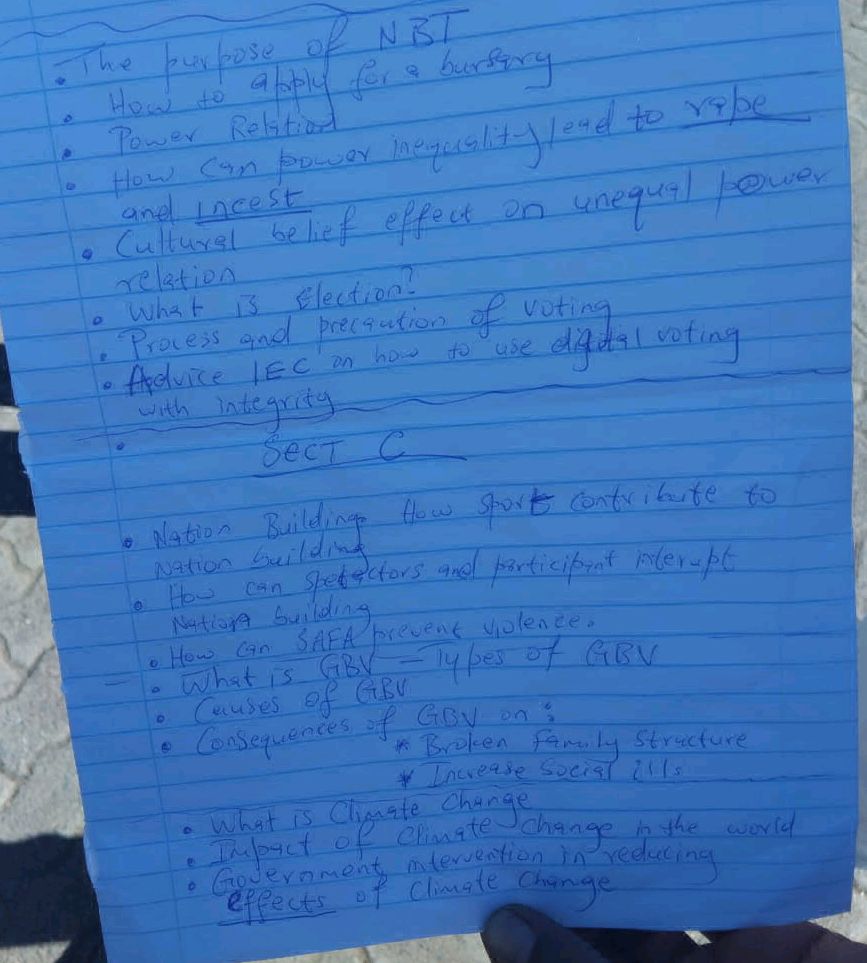 • The purpose of NBT
• How to apply for a bursary
• Power Relation
• How can power inequality lead to rape
and incest
• Cultural belief effect on unequal power
relation
• What is Election?
• Process and precaution of voting
• Advice IEC on how to use digital voting
with integrity
•
Sect C
• Nation Building. How sport contribute to
Nation building
• How can spetectors and participant interupt
Nation building
• How can SAFA prevent violence.
• What is GBV – Types of GBV
• Causes of GBV
• Consequences of GBV on :
* Broken family structure
* Increase Social ills
• What is Climate Change
• Impact of Climate Change in the world
• Government intervention in reducing
effects of Climate Change